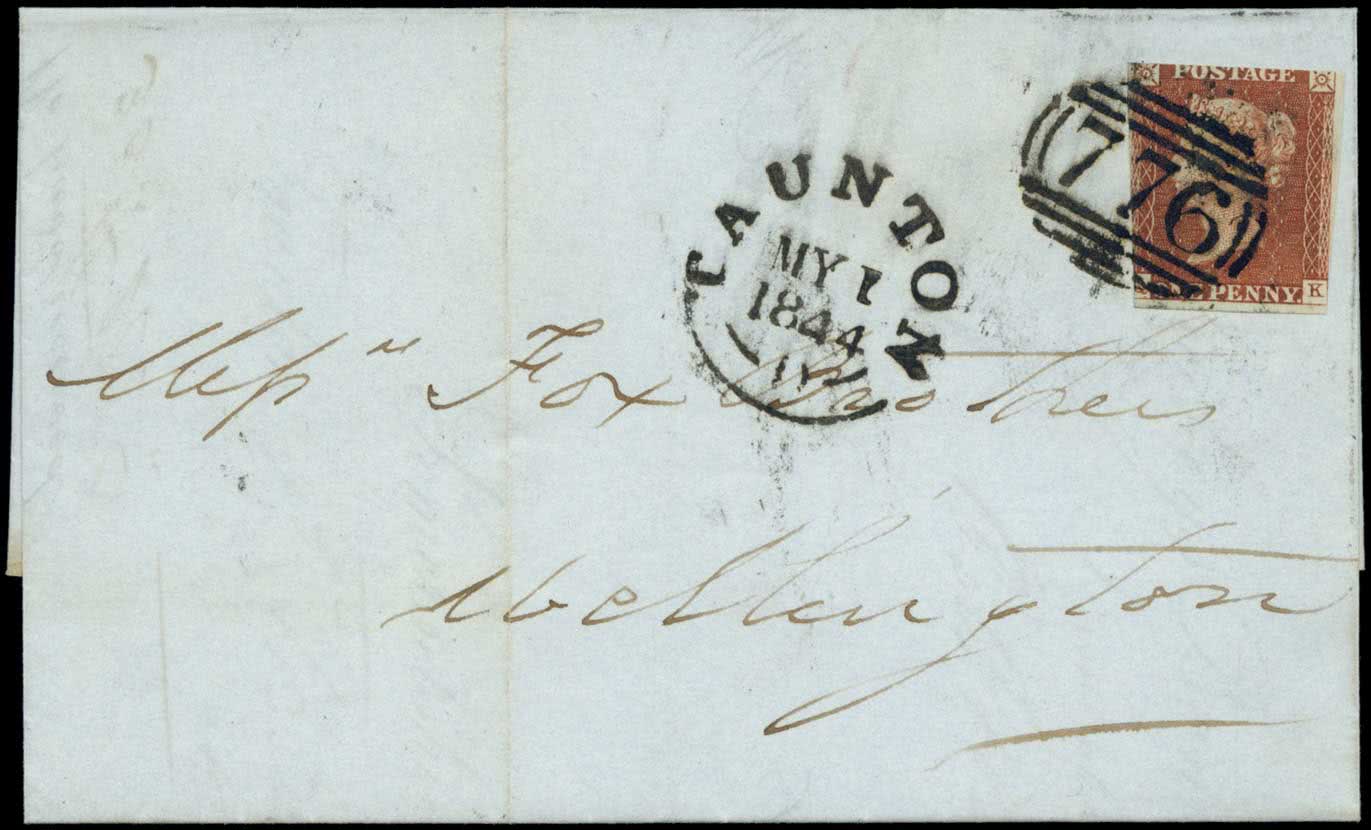 POSTAGE
776
PENNY. K
TAUNTON
MY 1
1844
Messrs Fox Brothers
Wellington